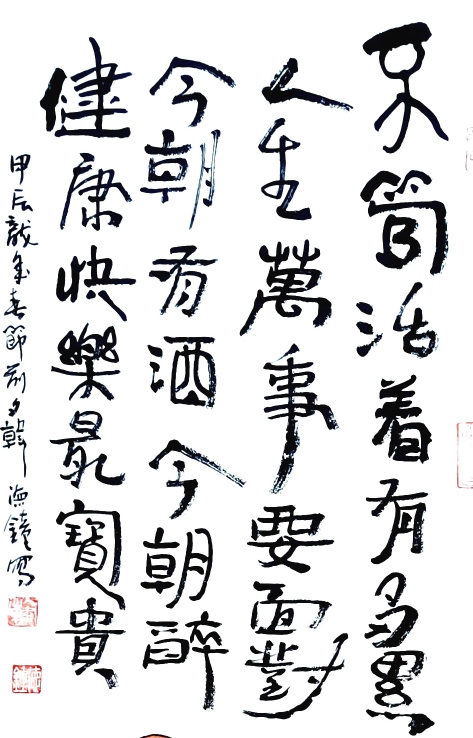 不管活着有多累
人生萬事要面對
今朝有酒今朝醉
健康快樂最寶貴
甲辰龍年春節前夕韓漁寫